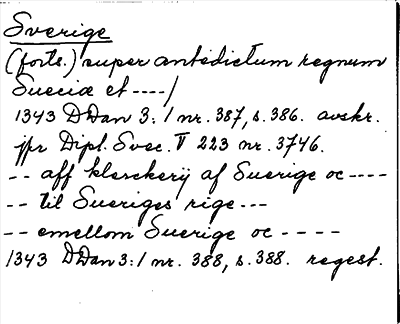 Sverige
(forts.) super antedictum regnum
Sueciæ et ----/
1343 DDan 3:1 nr. 387, s. 386. avskr.
jfr Dipl. Svec. V 223 nr. 3746.
-- aff klerckerij af Suerige oc ----
-- til Sueriges rige ---
-- emellom Suerige oc - - - -
1343 DDan 3:1 nr. 388, s. 388. regest.